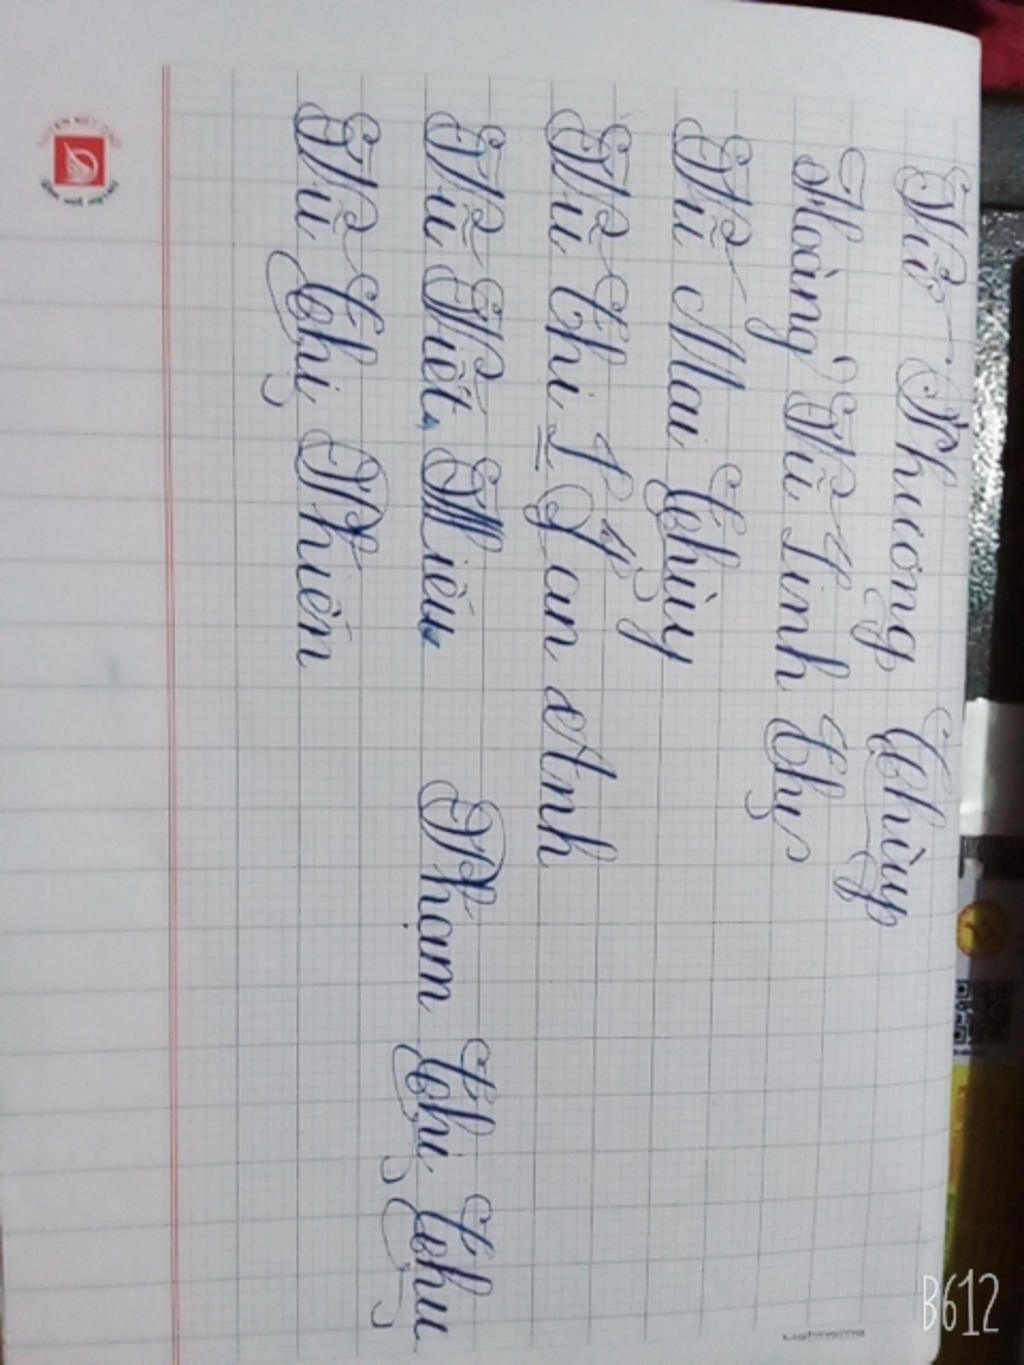 Vũ Phương Thùy
Hoàng Vũ Linh Thy
Vũ Mai Thùy
Vũ Thị Lan Anh
Vũ Viết Kiều Phạm Thị Thu
Vũ Thị Phiến
B612